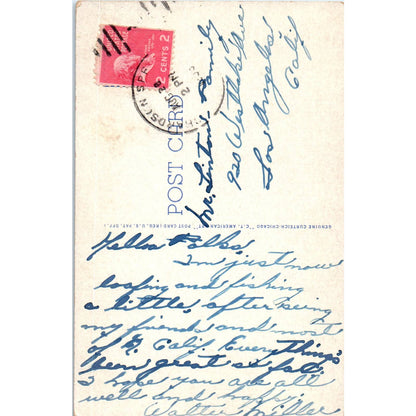 2 CENTS 2
RDSON SPR
AUG 28
2 PM
POST CARD
Mr. Linton Family
920 West
Los Angeles
Calif
GENUINE CURTEICH-CHICAGO "C.T. AMERICAN ART" POST CARD (REG. U.S. PAT. OFF.)
Hello Folks,
I'm just now
loafing and fishing
a little, after seeing
my friends and most
of N. Calif. Everything's
been great so far.
I hope you are all
well and happy.
Walter Miller